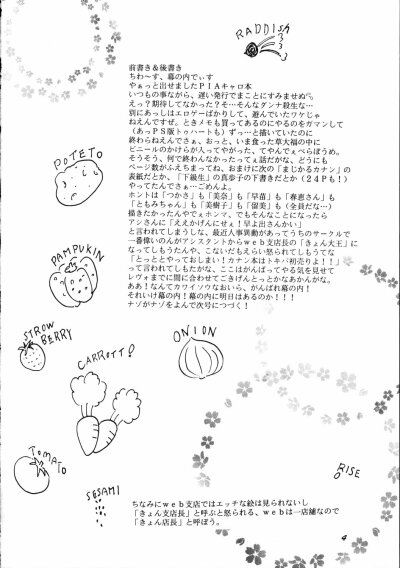 RADDISH
前書き＆後書き
ちわ～す、幕の内でぃす
やぁっと出せましたＰＩＡキャロ本
いつもの事ながら、遅い発行でまことにすみませぬ
えっ？期待してなかった？そ…そんなダンナ殺生な…
別にあっしはエロゲーばかりして、遊んでいたワケじゃ
ねえんですぜ。ときメモも買ってあるのにやるのをガマンして
（あっＰＳ版トゥハートも）ずっ…と描いていたのに
終わらねえんでさぁ、おっと、いま食った草大福の中に
ビニールのかけらが入ってやがった、てやんでぇべらぼうめ。
そうそう、何で終わんなかったってぇ話だがな、どうにも
ページ数がふえちまってね、おまけに次の「まじかるカナン」の
表紙だとか、「下級生」の真歩子の下書きだとか（２４Ｐも！）
やってたんでさぁ…ごめんよ。
ホントは「つかさ」も「美奈」も「早苗」も「春恵さん」も
「ともみちゃん」も「美樹子」も「留美」も（全員だな…）
描きたかったんやでぇホンマ、でもそんなことになったら
アシさんに「ええかげんにせぇ！早よ出さんかい」
と言われてしまうしな、最近人事異動があってうちのサークルで
一番偉いのんがアシスタントからｗｅｂ支店長の「きょん大王」に
なってしもうたんや、こないだもえらい怒られてしもうてな
「とっととやっておしまい！カナン本はトキパ初売りよ！！」
って言われてしもたがな、ここはがんばってやる気を見せて
レヴォまでに間に合わせてごきげんとっとかなあかんがな。
ああ！なんてカワイソウなおいら、がんばれ幕の内！
それいけ幕の内！幕の内に明日はあるのか！！！
ナゾがナゾをよんで次号につづく！
POTETO
PAMPUKIN
STROW
BERRY
ONION
CARROTTO
TOMATO
SESAMI
RISE
ちなみにｗｅｂ支店ではエッチな絵は見られないし
「きょん支店長」と呼ぶと怒られる、ｗｅｂは一店舗なので
「きょん店長」と呼ぼう。
4